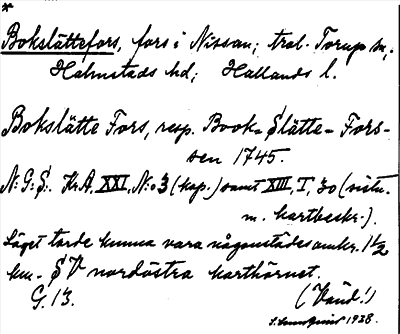 *
Bokslättefors, fors i Nissan; trol. Torups sn,
Halmstads hd; Hallands l.
Bokslätte Fors, resp. Book=Slätte=Fors-
sen 1745.
N:G:S:. Kr.A, XXI, N:o 3 (kop.) samt XIII, I, 30 (
m. kartbeskr.).
Läget torde kunna vara någonstädes omkr. 1 1/2
km. SV nordöstra karthörnet.
G. 13. (Vänd!)
1928.